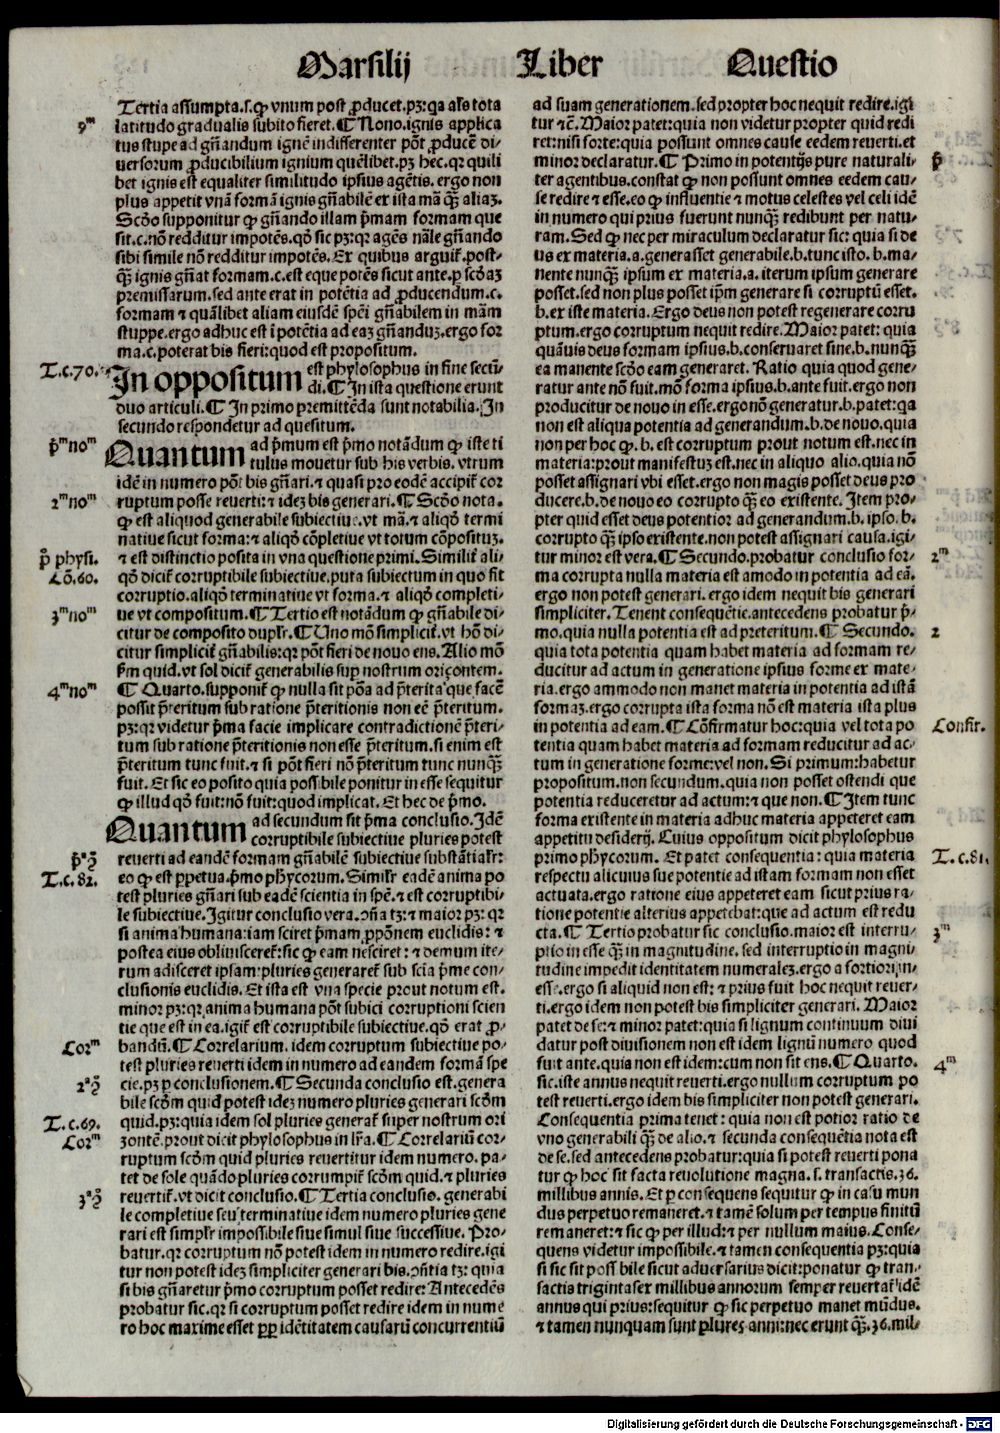 Marsilij Liber Questio
Tertia assumpta.s.ꝙ vnum post ꝓducet.pȝ:qa als tota
9ᵐ latitudo gradualis subito fieret.¶ Nono.ignis applica
tus stupe ad gn̄andum ignē indifferenter pōt ꝓducē di/
uersorum ꝓducibilium ignium quēlibet.pȝ hec.qr quili
bet ignis est equaliter similitudo ipsius agētis. ergo non
plus appetit vnā formā ignis gn̄abilē ex ista mā qȝ̄ aliaȝ.
Scōo supponitur ꝙ gn̄ando illam p̄mam formam que
sit.c.nō redditur impotēs.qō sic pȝ:qr agēs nāle gn̄ando
sibi simile nō redditur impotēs. Ex quibus arguiť.post/
qȝ̄ ignis gn̄at formam.c.est eque potēs sicut ante.ꝑ scōaȝ
premissarum.sed ante erat in potētia ad ꝓducendum.c.
formam ⁊ quālibet aliam eiusdē spēi gn̄abilem in mām
stuppe.ergo adhuc est ī potētia ad eaȝ gn̄anduȝ.ergo for
ma.c.poterat bis fieri:quod est propositum.
T.c.70. In oppositum est phylosophus in fine secū/
di.¶ In ista questione erunt
duo articuli.¶ In primo premittēda sunt notabilia. In
secundo respondetur ad quesitum.
p̄ᵐnoᵐ Quantum ad p̄mum est p̄mo notādum ꝙ iste ti
tulus mouetur sub his verbis. vtrum
idē in numero pōt bis gn̄ari.⁊ quasi pro eodē accipiť cor
2ᵐnoᵐ ruptum posse reuerti:⁊ ideȝ bis generari.¶ Scōo nota.
ꝙ est aliquod generabile subiectiue.vt mā.⁊ aliqō termi
natiue sicut forma:⁊ aliqō cōpletiue vt totum cōpositum.
p̄ physi. ⁊ est distinctio posita in vna questione primi. Similiť ali/
Cō.60. qō diciť corruptibile subiectiue.puta subiectum in quo fit
corruptio.aliqō terminatiue vt forma.⁊ aliqō completi/
3ᵐnoᵐ ue vt compositum.¶ Tertio est notādum ꝙ gn̄abile di/
citur de composito dupsr.¶ Uno mō simpliciť.vt hō di/
citur simpliciť gn̄abilis:qr pōt fieri de novo ens. Alio mō
ẜm quid.vt sol diciť generabilis sup nostrum oriçontem.
4ᵐnoᵐ ¶ Quarto.supponiť ꝙ nulla sit pōa ad p̄terita que facē
possit p̄teritum sub ratione p̄teritionis non eē p̄teritum.
pȝ:qr videtur p̄ma facie implicare contradictionē p̄teri/
tum sub ratione p̄teritionis non esse p̄teritum.si enim est
p̄teritum tunc fuit.⁊ si pōt fieri nō p̄teritum tunc nunqȝ̄
fuit. Et sic eo posito quia possibile ponitur in esse sequitur
ꝙ illud qō fuit:nō fuit:quod implicat. Et hec de p̄mo.
Quantum ad secundum sit p̄ma conclusio. Idē
corruptibile subiectiue pluries potest
p̄ᵃꝯ̄ reuerti ad eandē formam gn̄abilē subiectiue substātialr:
T.c.82. eo ꝙ est ꝑpetua.p̄mo phycorum. Simisr eadē anima po
test pluries gn̄ari sub eadē scientia in spē.⁊ est corruptibi/
le subiectiue. Igitur conclusio vera.ꝯn̄a tȝ:⁊ maior pȝ: qr
si anima humana:iam sciret p̄mam ꝓpōnem euclidis: ⁊
postea eius obliuisceretť:sic ꝙ eam nesciret: ⁊ demum ite/
rum adisceret ipsam:pluries generareť sub scīa p̄me con/
clusionis euclidis. Et ista est vna specie prout notum est.
minor pȝ:qr anima humana pōt subici corruptioni scien
tie que est in ea.igiť est corruptibile subiectiue.qō erat ꝓ/
Corᵐ bandū.¶ Correlarium. idem corruptum subiectiue po/
test pluries reuerti idem in numero ad eandem formā spe
2ᵃꝯ̄ cie.pȝ ꝑ conclusionem.¶ Secunda conclusio est.genera
bile scōm quid potest ideȝ numero pluries generari scōm
T.c.69. quid.pȝ:quia idem sol pluries generať super nostrum ori
Corᵐ zontē.prout dicit phylosophus in lr̄a.¶ Correlariū cor/
ruptum scōm quid pluries reuertitur idem numero. pa/
tet de sole quādo pluries corrumpiť scōm quid.⁊ pluries
3ᵃꝯ̄ reuertiť.vt dicit conclusio.¶ Tertia conclusio. generabi
le completiue seu terminatiue idem numero pluries gene
rari est simplr impossibile siue simul siue successiue. Pro/
batur.qr corruptum nō potest idem in numero redire.igi
tur non potest ideȝ simpliciter generari bis.ꝯn̄tia tȝ: quia
si bis gn̄aretur p̄mo corruptum posset redire: Antecedēs
probatur sic.qr si corruptum posset redire idem in nume
ro hoc maxime esset ꝓꝑ idētitatem causarū concurrentiū
ad suam generationem.sed propter hoc nequit redire.igi
tur ⁊c̄. Maior patet:quia non videtur propter quid redi
ret:nisi forte:quia possunt omnes cause eedem reuerti.et
p̄ minor declaratur.¶ Primo in potentijs pure naturali/
ter agentibus.constat ꝙ non possunt omnes eedem cau/
se redire ⁊ esse.eo ꝙ influentie ⁊ motus celestes vel celi idē
in numero qui prius fuerunt nunqȝ̄ redibunt per natu/
ram. Sed ꝙ nec per miraculum declaratur sic: quia si de
us ex materia.a.generasset generabile.b.tunc isto. b.ma/
nente nunqȝ̄ ipsum ex materia.a. iterum ipsum generare
posset.sed non plus posset ip̄m generare si corruptū esset.
b.ex iste materia. Ergo deus non potest regenerare corru
ptum.ergo corruptum nequit redire. Maior patet: quia
quāuis deus formam ipsius.b.conseruaret sine.b.nunqȝ̄
ea manente scōo eam generaret. Ratio quia quod gene/
ratur ante nō fuit.mō forma ipsius.b.ante fuit.ergo non
producitur de nouo in esse.ergo nō generatur.b.patet:qa
non est aliqua potentia ad generandum.b.de nouo.quia
non per hoc ꝙ. b. est corruptum prout notum est.nec in
materia:prout manifestuȝ est.nec in aliquo alio.quia nō
posset assignari vbi esset.ergo non magis posset deus pro
ducere.b.de nouo eo corrupto qȝ̄ eo existente. Item pro/
pter quid esset deus potentior ad generandum.b. ipso. b.
corrupto qȝ̄ ipso existente.non potest assignari causa.igi/
2ᵐ tur minor est vera.¶ Secundo.probatur conclusio for/
ma corrupta nulla materia est amodo in potentia ad eā.
ergo non potest generari. ergo idem nequit bis generari
simpliciter. Tenent consequētie.antecedens probatur p̄/
2 mo.quia nulla potentia est ad preteritum.¶ Secundo.
quia tota potentia quam habet materia ad formam re/
ducitur ad actum in generatione ipsius forme ex mate/
ria.ergo ammodo non manet materia in potentia ad istā
formaȝ.ergo corrupta ista forma nō est materia ista plus
Confir. in potentia ad eam.¶ Cōfirmatur hoc:quia vel tota po
tentia quam habet materia ad formam reducitur ad ac/
tum in generatione forme:vel non. Si primum:habetur
propositum.non secundum.quia non posset ostendi que
potentia reduceretur ad actum:⁊ que non.¶ Item tunc
forma existente in materia adhuc materia appeteret eam
appetitu desiderij. Cuius oppositum dicit phylosophus
T.c.81. primo phycorum. Et patet consequentia: quia materia
respectu alicuius sue potentie ad istam formam non esset
actuata.ergo ratione eius appeteret eam sicut prius ra/
tione potentie alterius appetebat:que ad actum est redu
3ᵐ cta.¶ Tertio probatur sic conclusio.maior est interru/
ptio in esse qȝ̄ in magnitudine. sed interruptio in magni/
tudine impedit identitatem numeraleȝ.ergo a fortiori in/
esse.ergo si aliquid non est: ⁊ prius fuit hoc nequit reuer/
ti.ergo idem non potest bis simpliciter generari. Maior
patet de se:⁊ minor patet:quia si lignum continuum diui
datur post diuisionem non est idem lignū numero quod
4ᵐ fuit ante.quia non est idem:cum non sit ens.¶ Quarto.
sic.iste annus nequit reuerti.ergo nullum corruptum po
test reuerti.ergo idem bis simpliciter non potest generari.
Consequentia prima tenet: quia non est potior ratio de
vno generabili qȝ̄ de alio.⁊ secunda consequētia nota est
de se.sed antecedens probatur:quia si potest reuerti pona
tur ꝙ hoc sit facta reuolutione magna.s. transactis.36.
millibus annis. Et ꝑ consequens sequitur ꝙ in casu mun
dus perpetuo remaneret.⁊ tamē solum per tempus finitū
remaneret:⁊ sic ꝙ per illud:⁊ per nullum maius. Conse/
quens videtur impossibile.⁊ tamen consequentia pȝ:quia
si sic sit possibile sicut aduersarius dicit:ponatur ꝙ tran/
sactis trigintasex millibus annorum semper reuertať idē
annus qui prius:sequitur ꝙ sic perpetuo manet mūdus.
⁊ tamen nunquam sunt plures anni:nec erunt qȝ̄.36.mil/
Digitalisierung gefördert durch die Deutsche Forschungsgemeinschaft - DFG